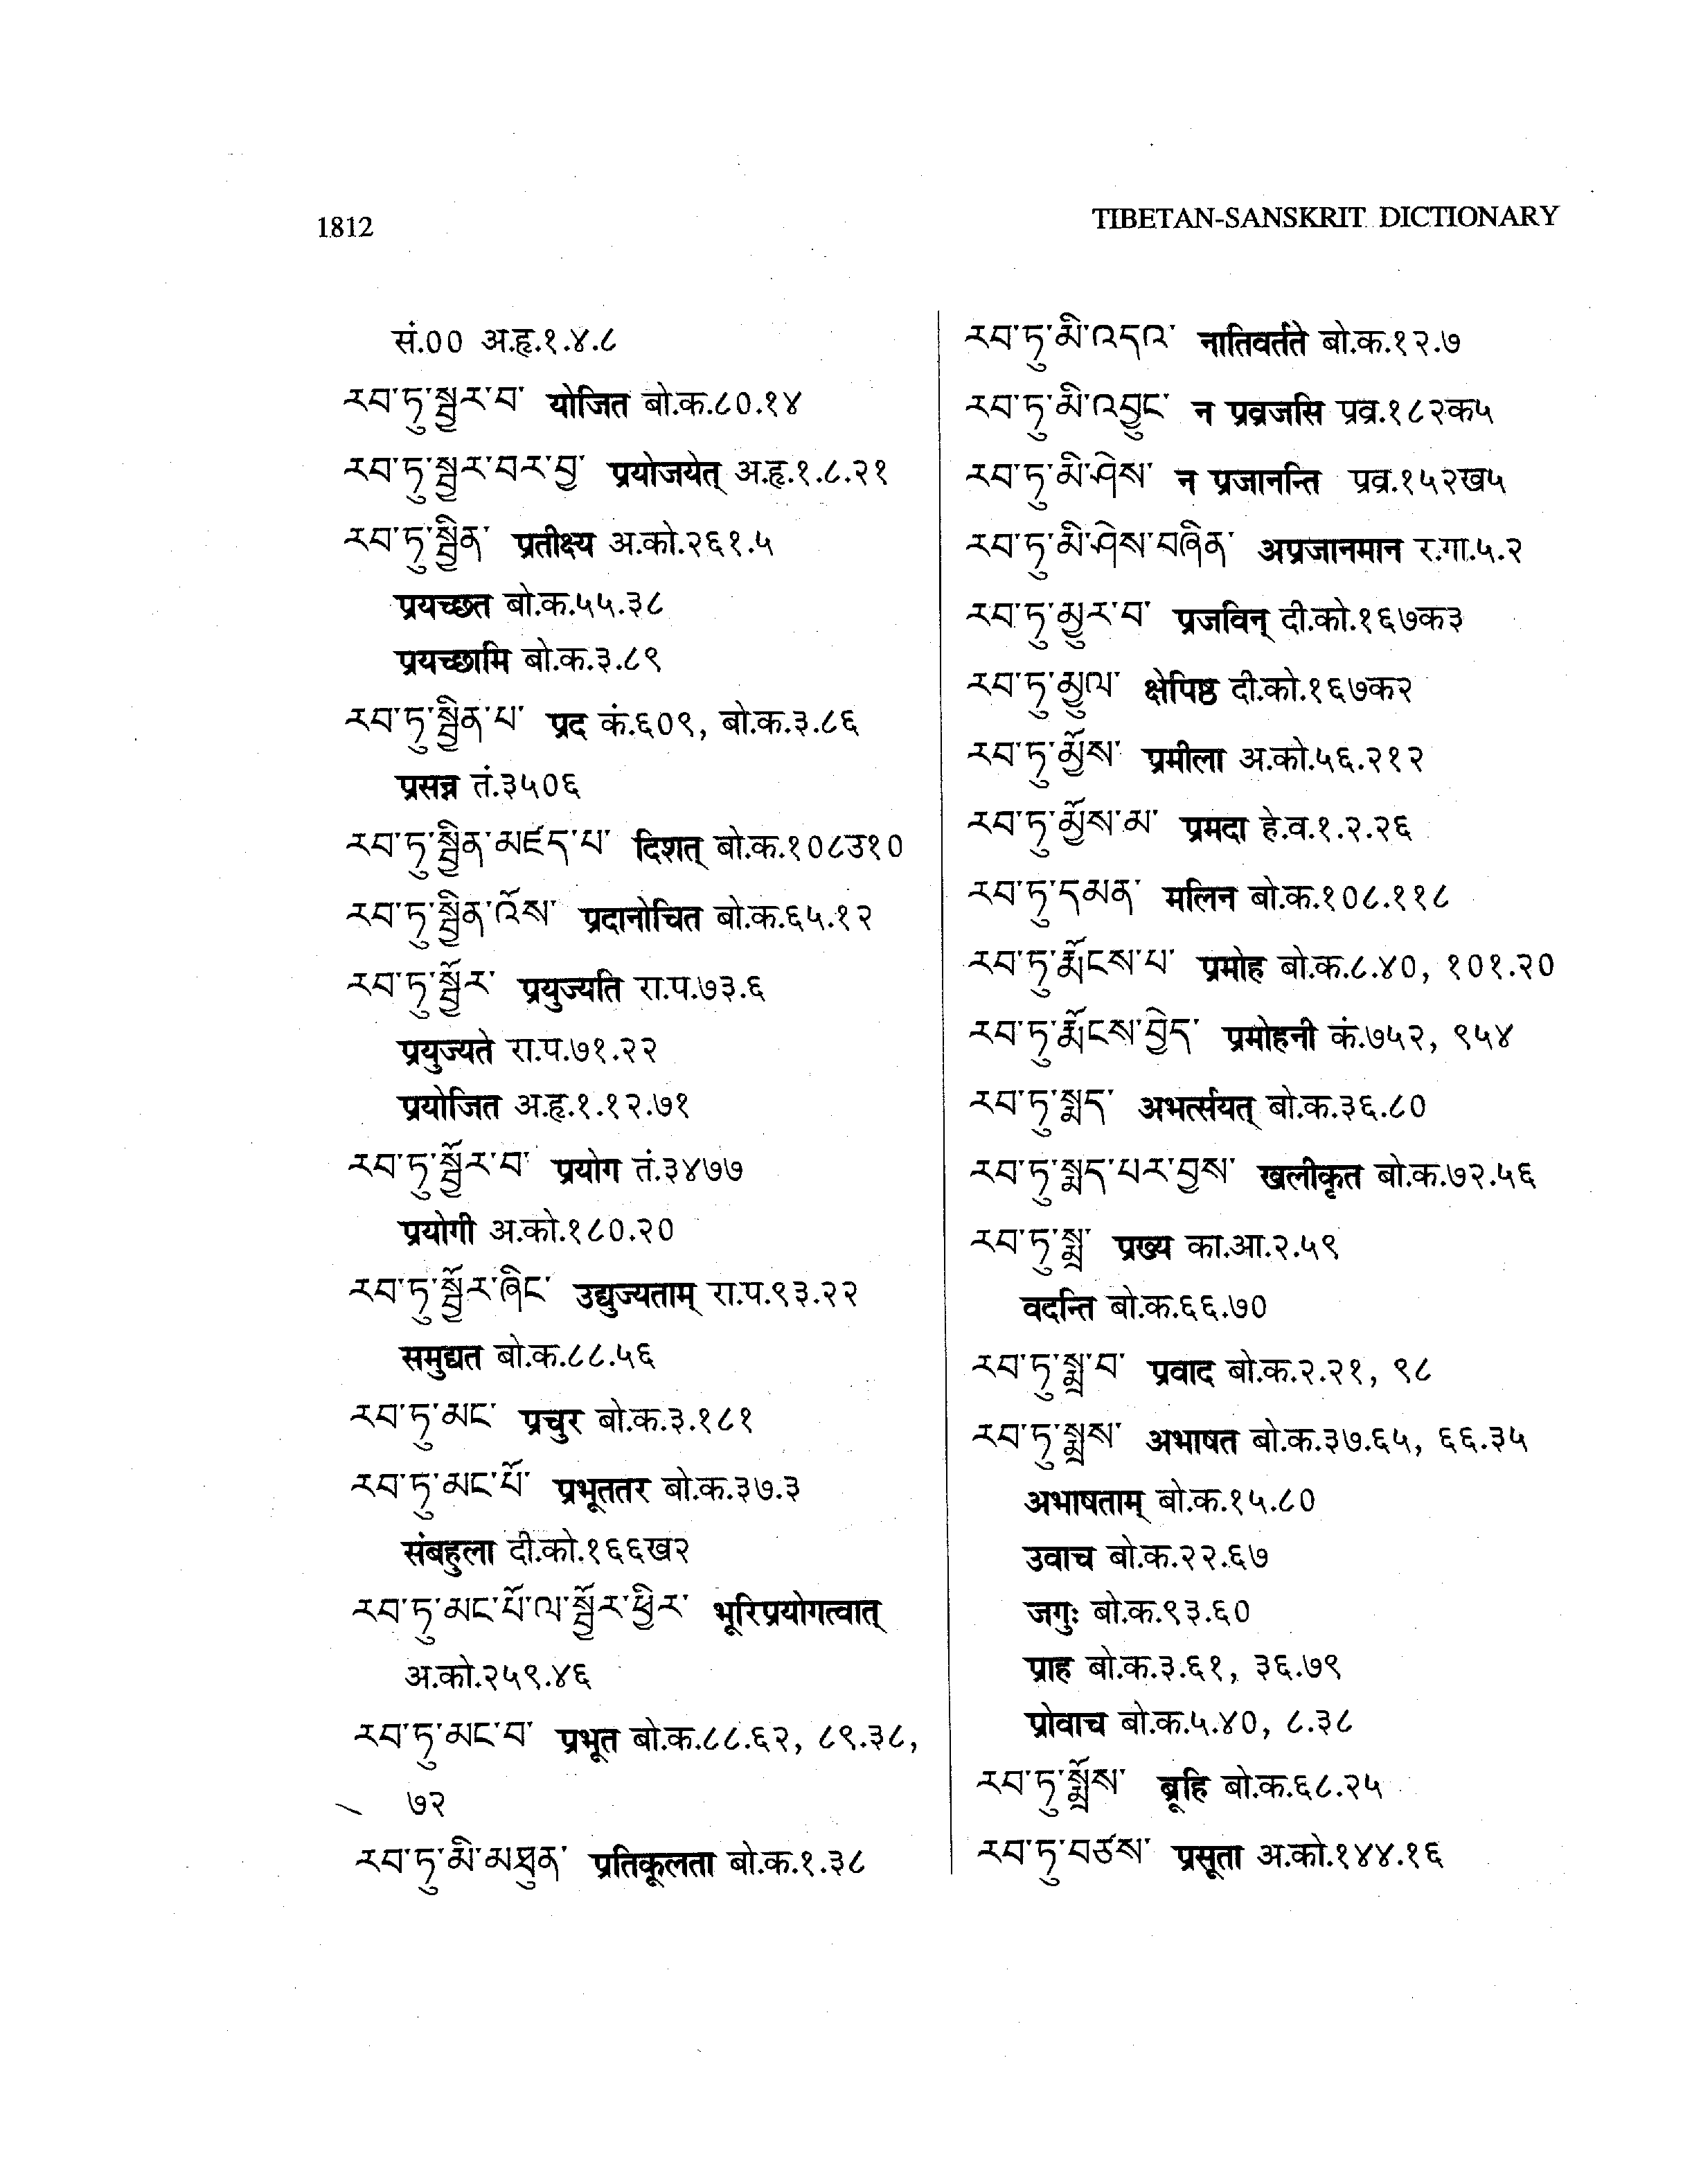 1812
TIBETAN-SANSKRIT DICTIONARY
सं.०० अ.हृ.१.४.८
རབ་ཏུ་སྦྱར་བ་ योजित बो.क.८०.१४
རབ་ཏུ་སྦྱར་བར་བྱ་ प्रयोजयेत् अ.हृ.१.८.२१
རབ་ཏུ་སྦྱིན་ प्रतीक्ष्य अ.को.२६१.५
प्रयच्छत बो.क.५५.३८
प्रयच्छामि बो.क.३.८९
རབ་ཏུ་སྦྱིན་པ་ प्रद कं.६०९, बो.क.३.८६
प्रसन्न तं.३५०६
རབ་ཏུ་སྦྱིན་མཛད་པ་ दिशत् बो.क.१०८उ१०
རབ་ཏུ་སྦྱིན་འོས་ प्रदानोचित बो.क.६५.१२
རབ་ཏུ་སྦྱོར་ प्रयुज्यति रा.प.७३.६
प्रयुज्यते रा.प.७१.२२
प्रयोजित अ.हृ.१.१२.७१
རབ་ཏུ་སྦྱོར་བ་ प्रयोग तं.३४७७
प्रयोगी अ.को.१८०.२०
རབ་ཏུ་སྦྱོར་ཞིང་ उद्युज्यताम् रा.प.९३.२२
समुद्यत बो.क.८८.५६
རབ་ཏུ་མང་ प्रचुर बो.क.३.१८१
རབ་ཏུ་མང་པོ་ प्रभूततर बो.क.३७.३
संबहुला दी.को.१६६ख२
རབ་ཏུ་མང་པོ་ལ་སྦྱོར་ཕྱིར་ भूरिप्रयोगत्वात्
अ.को.२५९.४६
རབ་ཏུ་མང་བ་ प्रभूत बो.क.८८.६२, ८९.३८,
७२
རབ་ཏུ་མི་མཐུན་ प्रतिकूलता बो.क.१.३८
རབ་ཏུ་མི་འདའ་ नातिवर्तते बो.क.१२.७
རབ་ཏུ་མི་འབྱུང་ न प्रव्रजसि प्रव्र.१८२क५
རབ་ཏུ་མི་ཤེས་ न प्रजानन्ति प्रव्र.१५२ख५
རབ་ཏུ་མི་ཤེས་བཞིན་ अप्रजानमान र.गा.५.२
རབ་ཏུ་མྱུར་བ་ प्रजविन् दी.को.१६७क३
རབ་ཏུ་མྱུལ་ क्षेपिष्ठ दी.को.१६७क२
རབ་ཏུ་མྱོས་ प्रमीला अ.को.५६.२१२
རབ་ཏུ་མྱོས་མ་ प्रमदा हे.व.१.२.२६
རབ་ཏུ་དམན་ मलिन बो.क.१०८.११८
རབ་ཏུ་རྨོངས་པ་ प्रमोह बो.क.८.४०, १०१.२०
རབ་ཏུ་རྨོངས་བྱེད་ प्रमोहनी कं.७५२, ९५४
རབ་ཏུ་སྨད་ अभर्त्सयत् बो.क.३६.८०
རབ་ཏུ་སྨད་པར་བྱས་ खलीकृत बो.क.७२.५६
རབ་ཏུ་སྨྲ་ प्रख्य का.आ.२.५९
वदन्ति बो.क.६६.७०
རབ་ཏུ་སྨྲ་བ་ प्रवाद बो.क.२.२१, ९८
རབ་ཏུ་སྨྲས་ अभाषत बो.क.३७.६५, ६६.३५
अभाषताम् बो.क.१५.८०
उवाच बो.क.२२.६७
जगुः बो.क.९३.६०
प्राह बो.क.३.६१, ३६.७९
प्रोवाच बो.क.५.४०, ८.३८
རབ་ཏུ་སྨྲོས་ ब्रूहि बो.क.६८.२५
རབ་ཏུ་བཙས་ प्रसूता अ.को.१४४.१६